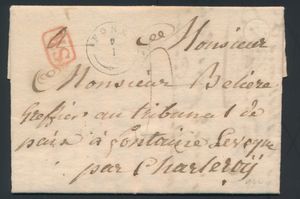 A Monsieur
Monsieur Belière
Greffier au tribunal de
paix à fontaine Leveque
par Charleroÿ